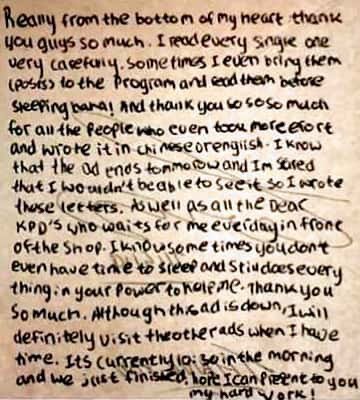 Really from the bottom of my heart thank
you guys so much. I read every single one
very carefully. Sometimes I even bring them
(posts) to the Program and read them before
sleeping haha! And thank you so so so much
for all the people who even took more efort
and wrote it in chinese or english. I know
that the ad ends tommorow and Im
that I wouldn't be able to see it so I wrote
these letters. As well as all the Dear
KPD's who waits for me everday in front
of the Shop. I know some times you dont
even have time to sleep and Still does every
thing in your power to help me. Thank you
So much. Although this ad is down, I will
definitely visit the other ads when I have
time. Its currently 10:50 in the morning
and we just finished, hope I can Present to you
my hard work!